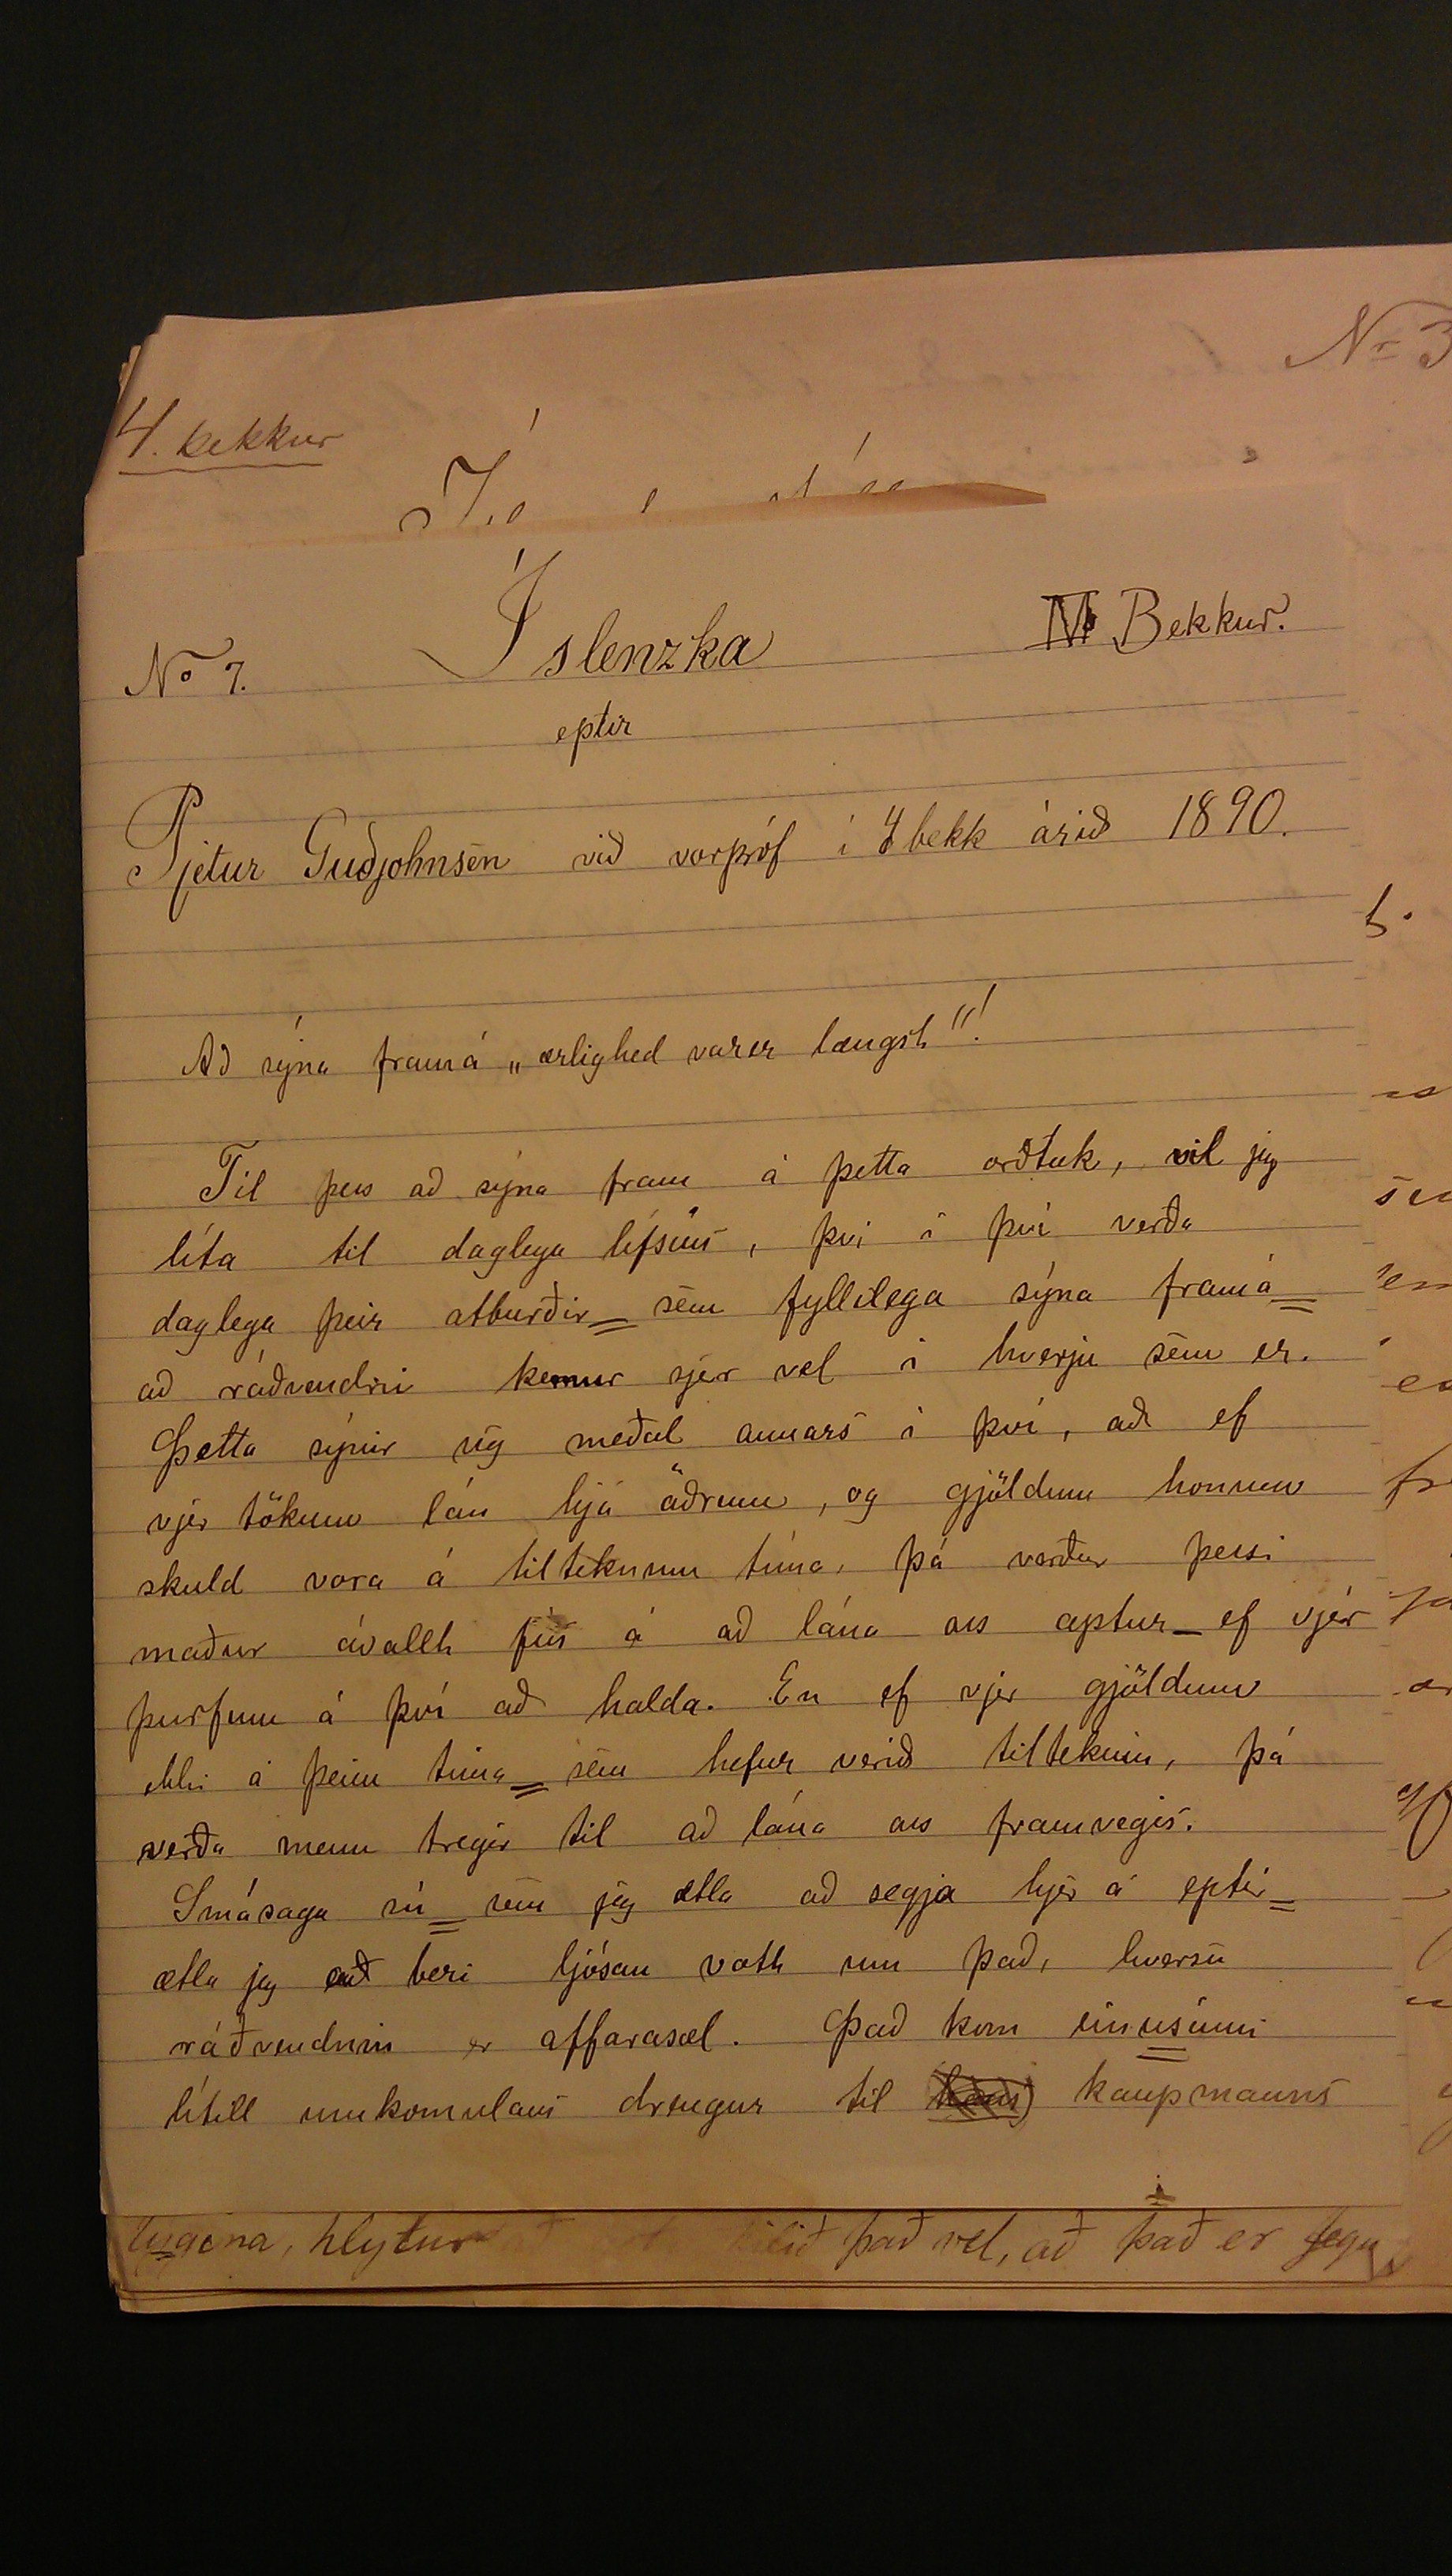 Nr 3
4. bekkur
No 7. Íslenzka IV Bekkur.
eptir
Pjetur Guðjohnsen við vorpróf í 4 bekk árið 1890.
Að sýna framá „ærlighed varer længst"!
Til þess að sýna fram á þetta orðtak, vil jeg
líta til daglega lífsins, því í því verða
daglega þeir atburðir sem fyllilega sýna framá
að ráðvendni kemur sjer vel í hverju sem er.
Þetta sýnir sig meðal annars í því, að ef
vjer tökum lán hjá öðrum, og gjöldum honum
skuld vora á tilteknum tíma, þá verður þessi
maður ávallt fús á að lána oss aptur ef vjer
þurfum á því að halda. En ef vjer gjöldum
ekki á þeim tíma sem hefur verið tiltekinn, þá
verða menn tregir til að lána oss framvegis.
Smásaga sú sem jeg ætla að segja hjer á eptir
ætla jeg að beri ljósan vott um það, hversu
ráðvendnin er affarasæl. Það kom einusinni
lítill umkomulaus drengur til kaupmanns
lygina, hlytur það vel, að það er